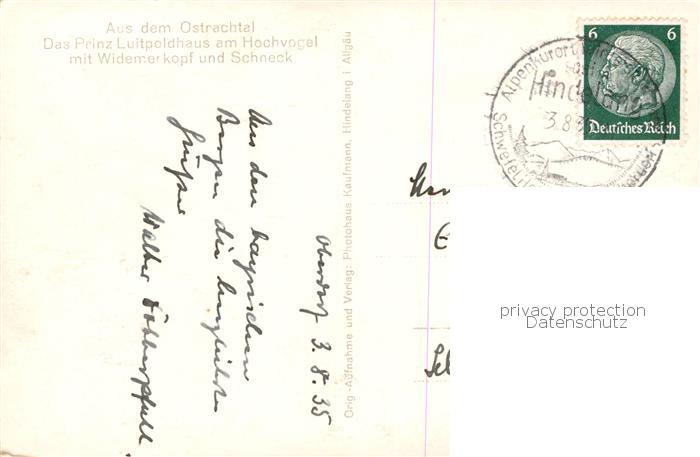 Aus dem Ostrachtal
Das Prinz Luitpoldhaus am Hochvogel
mit Widemerkopf und Schneck
6 6
Deutsches Reich
Alpenkurort
Hindelang
3.8.3
Schwefel
Orig.-Aufnahme und Verlag: Photohaus Kaufmann, Hindelang i. Allgäu
3.8.35
Aus den bayrischen
Bergen die herzlichsten
Grüße
Walter
privacy protection
Datenschutz